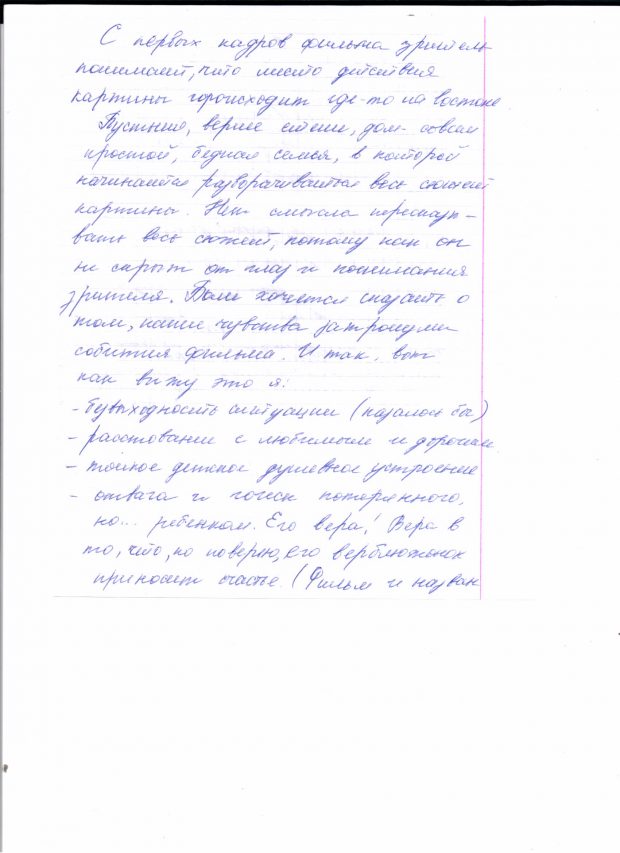 С первых кадров фильма зритель
понимает, что место действия
картины происходит где-то на востоке
Пустыня, вернее степи, дом- совсем
простой, бедная семья, в которой
начинается разворачиваться весь сюжет
картины. Нет смысла пересказы-
вать весь сюжет, потому как он
не скрыт от глаз и понимания
зрителя. Более хочется сказать о
том, какие чувства затронули
события фильма. И так, вот
как вижу это я:
- безысходность ситуации (казалось бы)
- расставание с любимым и дорогим
- тонкое детское душевное устроение
- отвага и поиск потерянного,
но... ребенком. Его вера! Вера в
то, что, по поверью, его верблюжонок
приносит счастье. (Фильм и назван